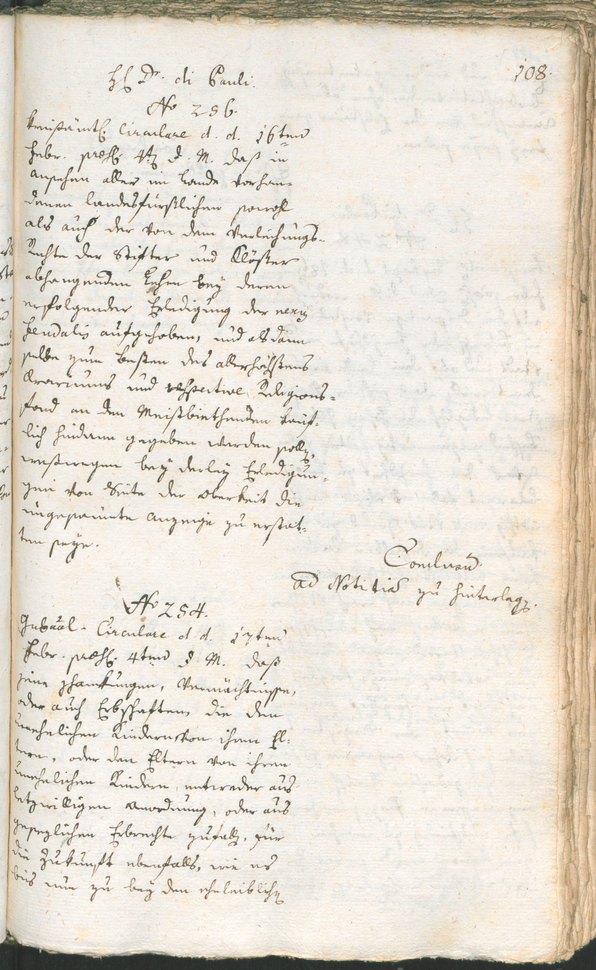 108.
H. Dr. di Pauli.
No 256.
Kreisämtl. Circulare d. d. 16ten
Febr. praes. 4t d. M. daß in
ansehen aller im Lande vorhan-
denen landesfürstlichen sowohl
als auch der von dem Verleihungs-
Rechte der Stifter und Klöster
abhangenden Lehen bey deren
erfolgender Erledigung der nexus
feudalis aufgehoben, und alsdann
selbe zum besten des allerhöchsten
Aerariums und respective Religions-
fond an den Meistbiethenden käuf-
lich hindann gegeben werden solle,
weßwegen bey derley Erledigun-
gen von Seite der Oberkeit die
ungesäumte Anzeige zu erstat-
ten seye.
Conclusum
ad Notitiam zu hinterlegen.
No 254.
Gubernal-Circulare d. d. 17ten
Febr. praes. 4ten d. M. daß
jene Schankungen, Vermächtnisse,
oder auch Erbschaften, die den
unehelichen Kindern von ihren El-
tern, oder den Eltern von ihren
unehelichen Kindern, entweder aus
letzwilligen anordnung, oder aus
gesezlichen Erbrechte zufallen, für
die Zukunft ebenfalls, wie es
bis nun zu bey den eheleiblichen